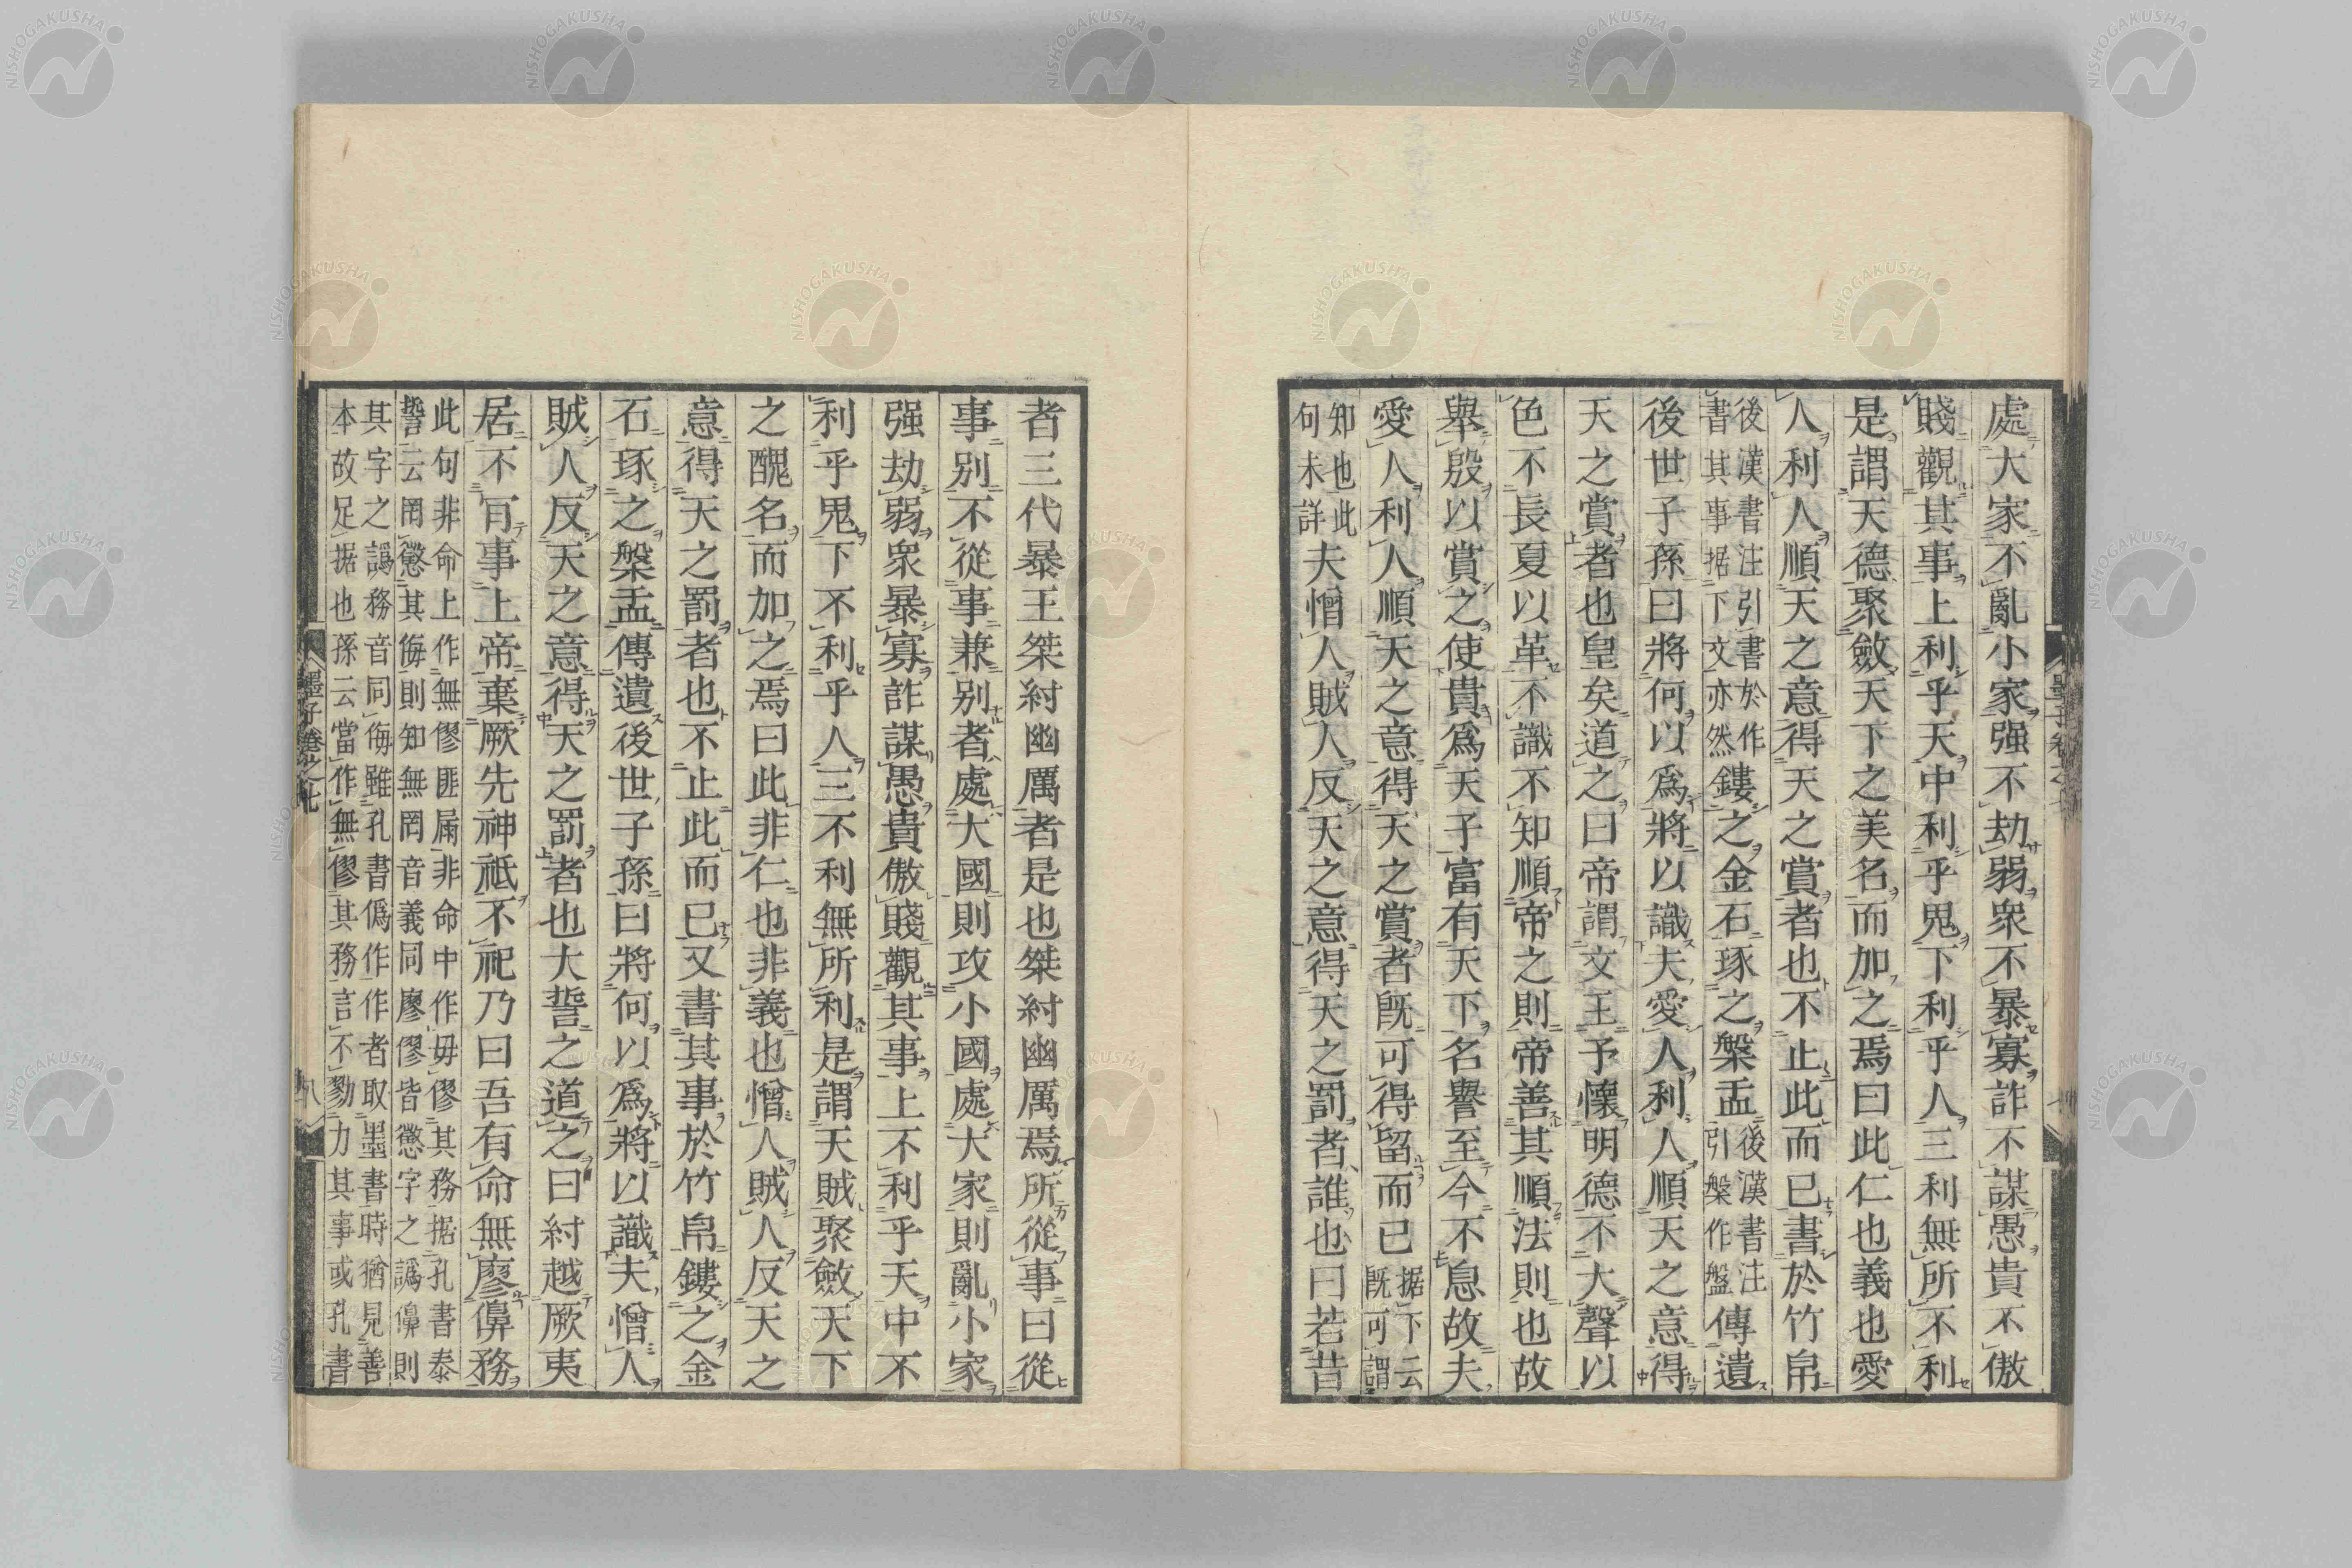 處大家不亂小家强不劫弱衆不暴寡詐不謀愚貴不傲
賤觀其事上利乎天中利乎鬼下利乎人三利無所不利
是謂天德聚斂天下之美名而加之焉曰此仁也義也愛
人利人順天之意得天之賞者也不止此而已書於竹帛
後漢書注引書於作
書其事据下文亦然
鏤之金石琢之槃盂
後漢書注
引槃作盤
傳遺
後世子孫曰將何以爲將以識夫愛人利人順天之意得
天之賞者也皇矣道之曰帝謂文王予懷明德不大聲以
色不長夏以革不識不知順帝之則帝善其順法則也故
舉殷以賞之使貴爲天子富有天下名譽至今不息故夫
愛人利人順天之意得天之賞者既可得留而已
据下云
既可謂
知也此
句未詳
夫憎人賊人反天之意得天之罰者誰也曰若昔
者三代暴王桀紂幽厲者是也桀紂幽厲焉所從事曰從
事別不從事兼別者處大國則攻小國處大家則亂小家
强劫弱衆暴寡詐謀愚貴傲賤觀其事上不利乎天中不
利乎鬼下不利乎人三不利無所利是謂天賊聚斂天下
之醜名而加之焉曰此非仁也非義也憎人賊人反天之
意得天之罰者也不止此而已又書其事於竹帛鏤之金
石琢之槃盂傳遺後世子孫曰將何以爲將以識夫憎人
賊人反天之意得天之罰者也大誓之道之曰紂越厥夷
居不冐事上帝棄厥先神祗不祀乃曰吾有命無廖㒗務
此句非命上作無僇匪屚非命中作毋僇其務据孔書泰
誓云罔懲其侮則知無罔音義同廖僇皆懲字之譌㒗則
其字之譌務音同侮雖孔書僞作作者取墨書時猶見善
本故足据也孫云當作無僇其務言不勠力其事或孔書
墨子卷之七
八
NISHOGAKUSHA